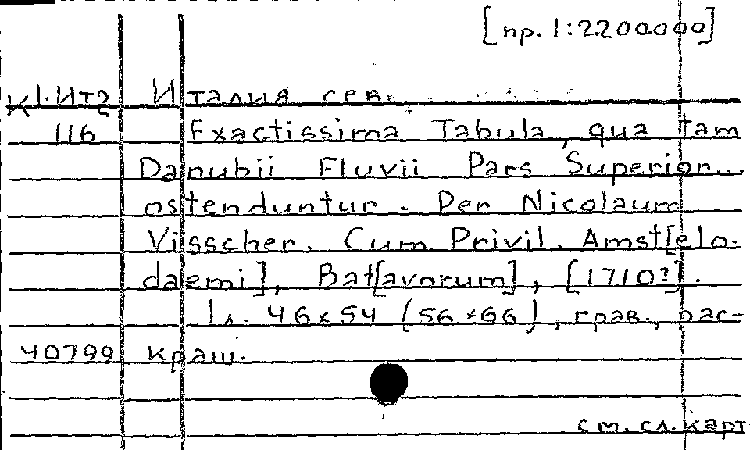 [пр. 1:2200000]
К1.Ит2 Италия сев.
116 Exactissima Tabula, qua tam
Danubii Fluvii Pars Superior...
ostenduntur. Per Nicolaum
Visscher. Cum Privil. Amst[elo-
daemi], Bat[avorum], [1710?].
1 л. 46x54 (56x66), грав., рас-
40799 краш.
см. сл. карт